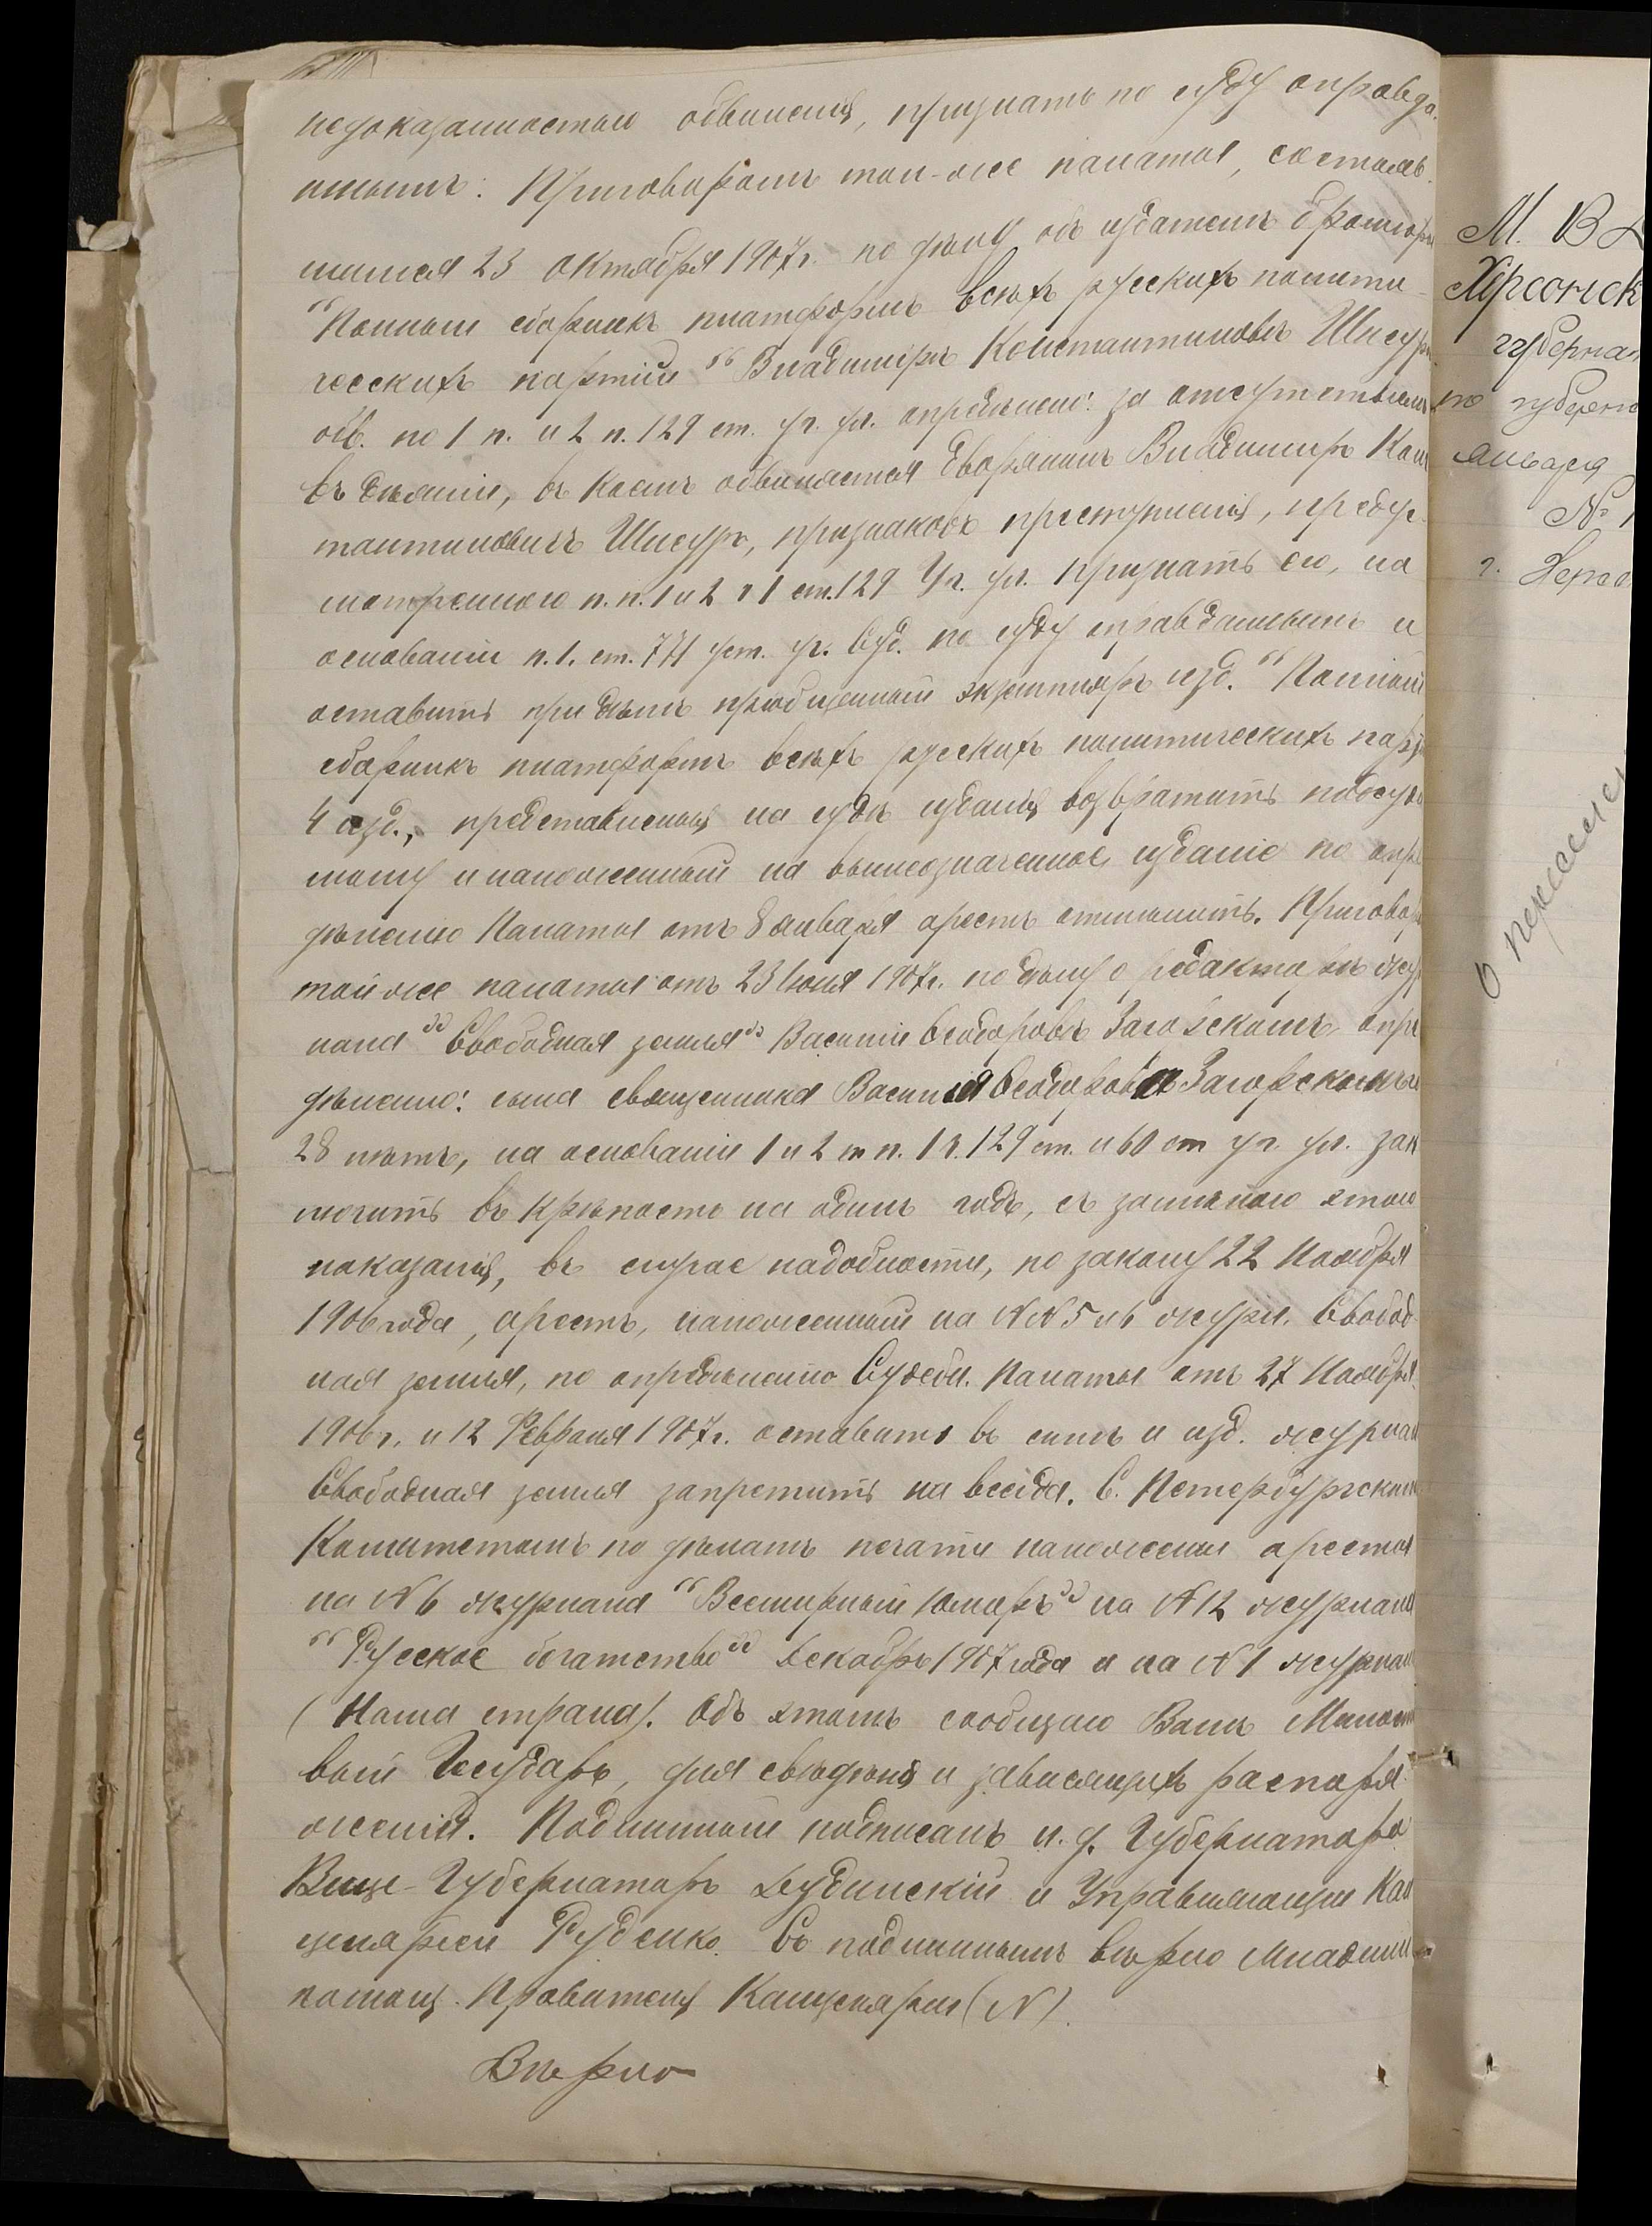 недоказанностью обвиненія, признать по суду оправда-
ннымъ. Приговоромъ той-же палаты, состояв-
шимся 23 Октября 1907г. по дѣлу объ издателѣ брошюры
"Полный сборникъ платформъ всѣхъ русскихъ полити-
ческихъ партій" Владимірѣ Константиновѣ Шнеуръ
обв. по 1 п. и 2 п. 129 ст. уг. ул. опредѣлено: за отсутствіемъ
въ дѣяніи, въ коемъ обвиняется дворянинъ Владиміръ Конс
тантиновичъ Шнеуръ, признаковъ преступленія, предус-
мотреннаго п.п. 1 и 2 ч 1 ст. 129 Уг. ул. признать его, на
основаніи п. 1. ст. 771 уст. уг. суд. по суду оправданнымъ и
оставить при дѣлѣ пріобщенный экземпляръ изд. "Полный
сборникъ платформъ всѣхъ русскихъ политическихъ парт
4 изд., представленныя на судѣ изданія возвратить подсуди
мому и наложенный на вышеозначенное изданіе по опре
дѣленію Палаты отъ 8 января арестъ отмѣнить. Приговоръ
той же палаты отъ 23 Іюня 1907г. по дѣлу о редакторѣ жур
нала "Свободная земля" Василіи Ѳеодоровѣ Загорскомъ опре
дѣлено: сына священника Василія Ѳеодорова Загорскаго
28 лѣтъ, на основаніи 1 и 2 п. 1 ч. 129 ст. и 60 ст уг. ул. зак
лючить въ крѣпость на одинъ годъ, съ замѣною этого
наказанія, въ случае надобности, по закону 22 Ноября
1906 года, арестъ, наложенный на №№ 5 и 6 журн. Свобод-
ная земля, по опредѣленію Судебн. Палаты отъ 27 Ноября
1906г. и 12 Февраля 1907г. оставить въ силѣ и изд. журнал
Свободная земля запретить на всегда. С. Петербургскимъ
Комитетомъ по дѣламъ печати наложены аресты
на № 6 журнала "Всемирный Юморъ" на № 12 журнала
"Русское богатство" декабрь 1907 года и на № 1 журнал
(Наша страна). Объ этомъ сообщаю Вамъ Милости
вый Государь, для свѣдѣнія и зависящихъ распоря-
женій. Подлинный подписалъ и. д. Губернатора
Вице-Губернаторъ Дудинскій и Управляющій Кан
целяріей Руденко. Съ подлиннымъ вѣрно Младшій
помощ. Правителя Канцеляріи (N).
Вѣрно
М. В. Д
Херсонск
губерна
по губернс
января
№ 1
г. Херсо